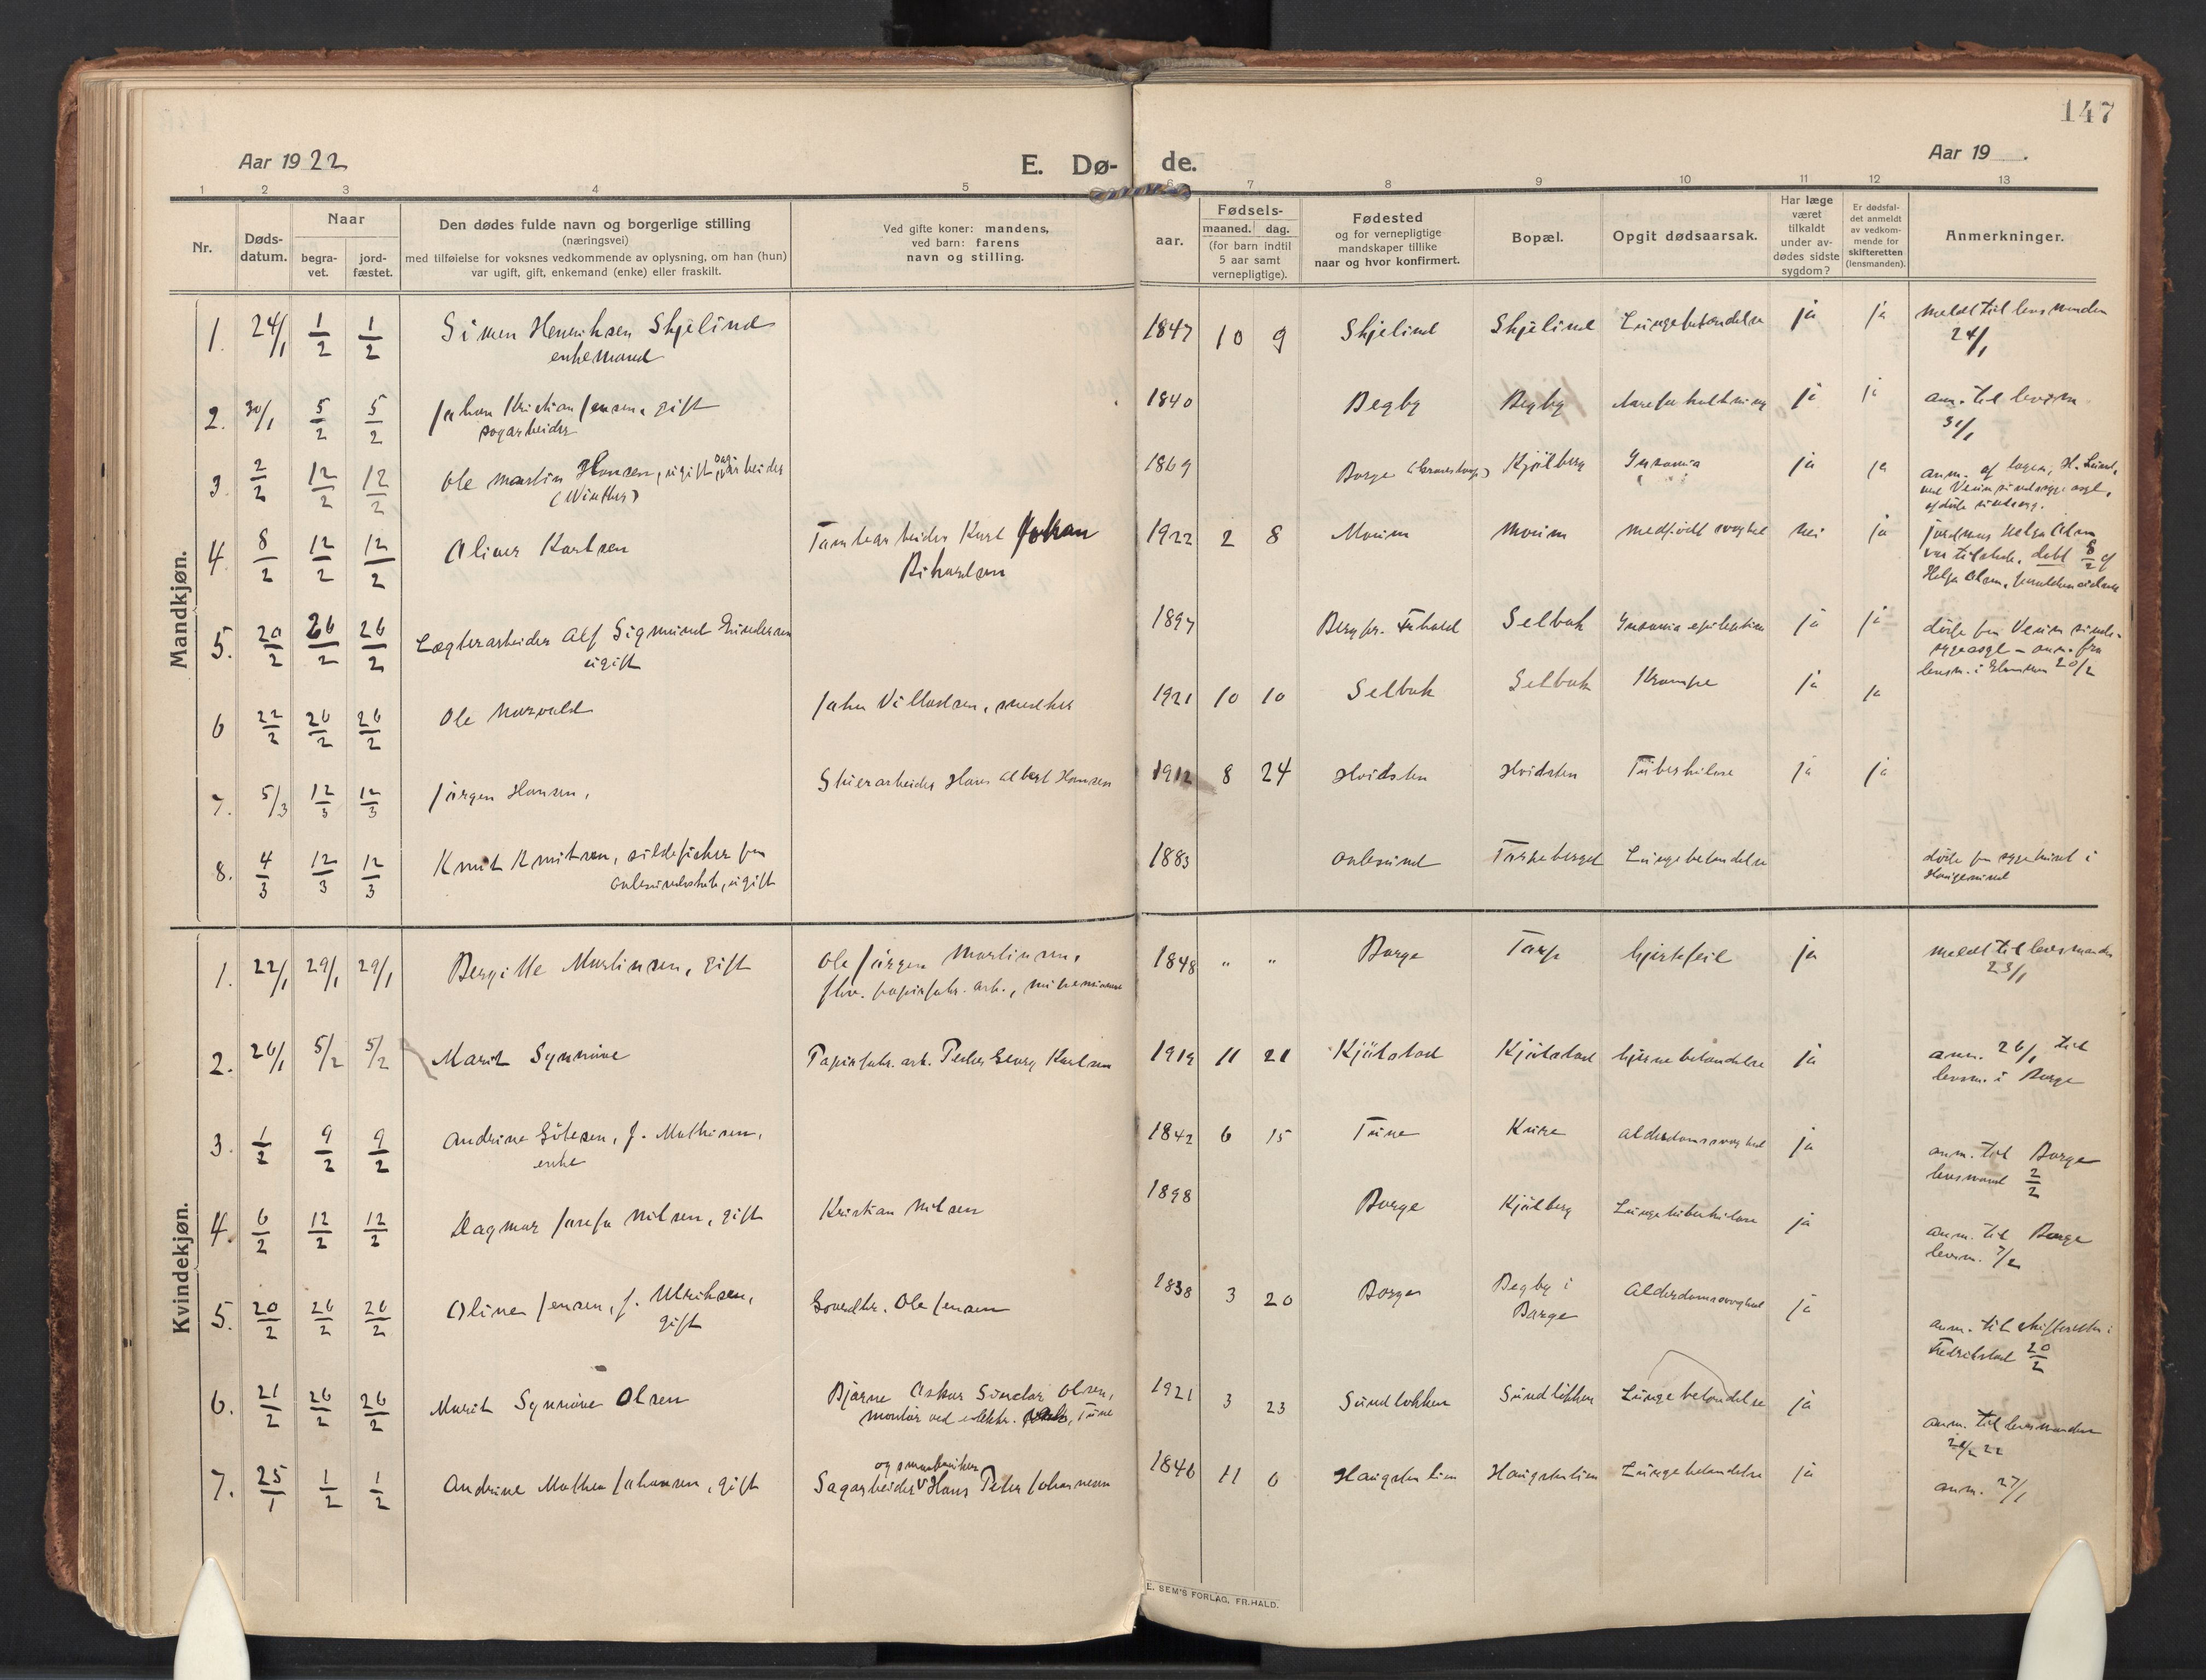 147
Aar 1922
E. Dø-
de.
Aar 19 .
1 2 3 4 5 6 7 8 9 10 11 12 13
Nr.
Døds-
datum.
Naar
begra-
vet.
jord-
fæstet.
Den dødes fulde navn og borgerlige stilling
(næringsvei)
med tilføielse for voksnes vedkommende av oplysning, om han (hun)
var ugift, gift, enkemand (enke) eller fraskilt.
Ved gifte koner: mandens,
ved barn: farens
navn og stilling.
aar.
Fødsels-
maaned. dag.
(for barn indtil
5 aar samt
vernepligtige).
Fødested
og for vernepligtige
mandskaper tillike
naar og hvor konfirmert.
Bopæl.
Opgit dødsaarsak.
Har læge
været
tilkaldt
under av-
dødes sidste
sygdom?
Er dødsfal-
det anmeldt
av vedkom-
mende for
skifteretten
(lensmanden).
Anmerkninger.
Mandkjøn.
1. 24/1 1/2 1/2 Simen Henriksen Skjelind 1847 10 9 Skjelind Skjelind Lungebetændelse ja ja meldt til lensmanden
enkemand 24/1
2. 30/1 5/2 5/2 Johan Kristian Jensen, gift 1840 Begby Begby Aareforkalkning ja ja anm. til lensm.
31/1
3. 2/2 12/2 12/2 Ole Martin Hansen, ugift 1869 Borge Kjölberg Insania ja ja anm. af lægen, H. Lund,
(Winther) ved Veum sindssygeasyl,
4. 8/2 12/2 12/2 Oliver Karlsen Tomtearbeider Karl Johan 1922 2 8 Moum Moum medfödt svaghet nei ja jordmor Helga Olsen
Rikardsen var tilstede, döbt 8/2 af
Helga Olsen
5. 20/2 26/2 26/2 Lægterarbeider Alf Sigmund Gundersen 1897 Berg pr. Fr.hald Selbak Insania epileptica ja ja döde paa Veum sinds-
ugift sygeasyl - anm. fra
lensm. i Glemmen 20/2
6 22/2 26/2 26/2 Ole Norvald Johan Villadsen, snedker 1921 10 10 Selbak Selbak Krampe ja ja
7. 5/3 12/3 12/3 Jörgen Hansen, Skierarbeider Hans Albert Hansen 1912 8 24 Hvidsten Hvidsten Tuberkulose ja ja
8. 4/3 12/3 12/3 Knut Knutsen, sildefisker fra 1883 Aalesund Torpeberget Lungebetændelse döde paa sygehuset i
ugift Haugesund
Kvindekjøn.
1. 22/1 29/1 29/1 Bergitte Martinsen, gift Ole Jörgen Martinsen, 1848 " " Borge Torp hjertefeil ja meldt til lensmanden
fhv. papirfabr. arb. 23/1
2. 26/1 5/2 5/2 Marit Synnöve Papirfabr. arb. Peder Georg Karlsen 1919 11 21 Kjölstad Kjölstad hjernebetændelse ja anm. 26/1 til
lensm. i Borge
3. 1/2 9/2 9/2 Andrine Götesen, f. Mathisen, 1842 6 15 Tune Kure Alderdomssvaghed ja anm. til Borge
enke lensmand 2/2
4. 6/2 12/2 12/2 Dagmar Josefa Nilsen, gift Kristian Nilsen 1898 Borge Kjölberg Lungetuberkulose ja anm. til Borge
lensm. 7/2
5. 20/2 26/2 26/2 Oline Jensen, f. Ulriksen, Gaardbr. Ole Jensen 1838 3 20 Borge Begby i Alderdomssvaghed ja anm. til skifteretten i
gift Borge Fredrikstad 20/2
6. 21/2 26/2 26/2 Marit Synnöve Olsen Bjarne Oskar Sundar Olsen, 1921 3 23 Sundlökken Sundlökken Lungebetændelse ja anm. til lensmanden
montör ved elektr. Tune
og smaabruker
7. 25/1 1/2 1/2 Andrine Mathea Johansen, gift Sagarbeider Hans Peter Johannesen 1846 11 6 Haugsten Lungebetændelse ja anm. 27/1
E. SEM'S FORLAG, FR.HALD.